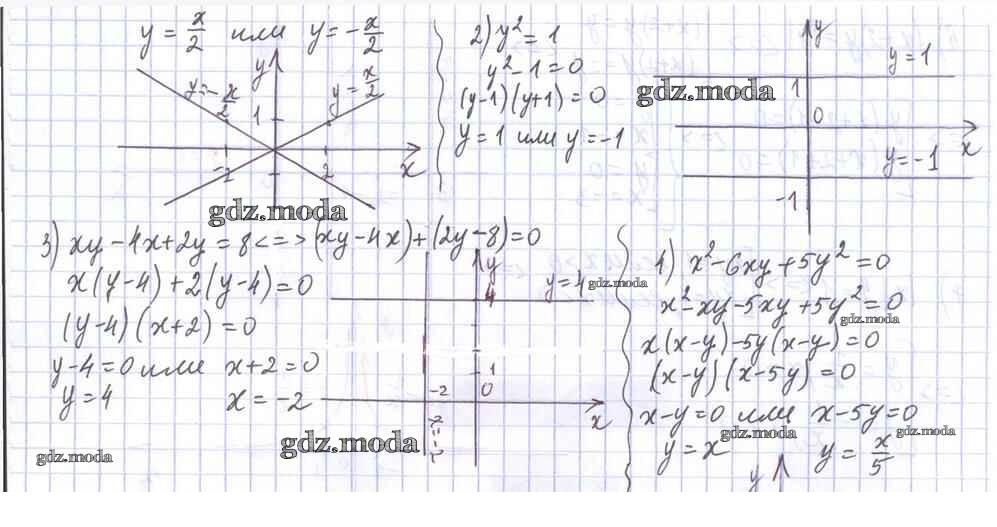 y = x/2 или y = -x/2
y
y = -x/2
y = x/2
1
-2
2
x
gdz.moda
2) y² = 1
y² - 1 = 0
(y-1)(y+1) = 0
y = 1 или y = -1
y
y = 1
gdz.moda
1
0
x
y = -1
-1
3) xy - 4x + 2y = 8 <=> (xy - 4x) + (2y - 8) = 0
x(y-4) + 2(y-4) = 0
(y-4)(x+2) = 0
y-4 = 0 или x+2 = 0
y = 4
x = -2
y
4
y = 4
gdz.moda
1
-2
0
x
gdz.moda
gdz.moda
4) x² - 6xy + 5y² = 0
x² - xy - 5xy + 5y² = 0
gdz.moda
x(x-y) - 5y(x-y) = 0
(x-y)(x-5y) = 0
x-y = 0 или x-5y = 0
gdz.moda
gdz.moda
y = x
y = x/5
y